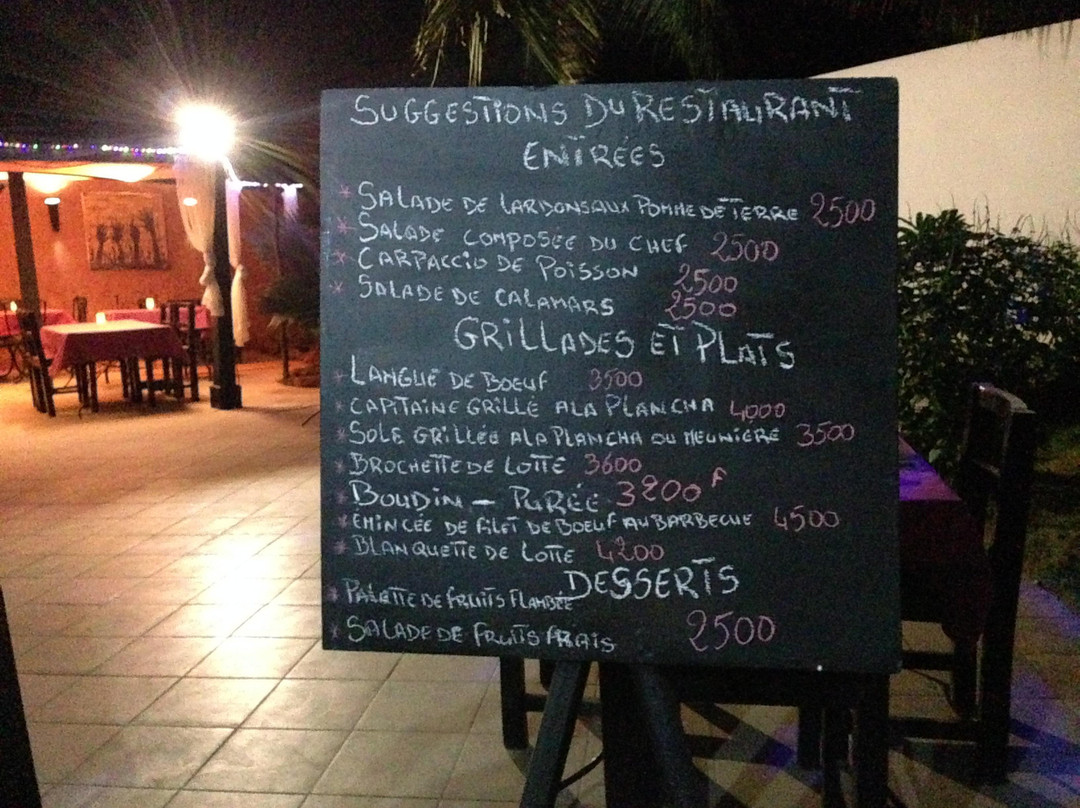 SUGGESTIONS DU RESTAURANT
ENTRÉES
* SALADE DE LARDONS AUX POMME DE TERRE 2500
* SALADE COMPOSÉE DU CHEF 2500
* CARPACCIO DE POISSON 2500
* SALADE DE CALAMARS 2500
GRILLADES ET PLATS
* LANGUE DE BOEUF 3500
* CAPITAINE GRILLÉ A LA PLANCHA 4000
* SOLE GRILLÉE A LA PLANCHA OU MEUNIÈRE 3500
* BROCHETTE DE LOTTE 3600
* BOUDIN - PURÉE 3200 F
* EMINCÉE DE FILET DE BOEUF AU BARBECUE 4500
* BLANQUETTE DE LOTTE 4200
DESSERTS
* PALETTE DE FRUITS FLAMBÉE
* SALADE DE FRUITS FRAIS 2500